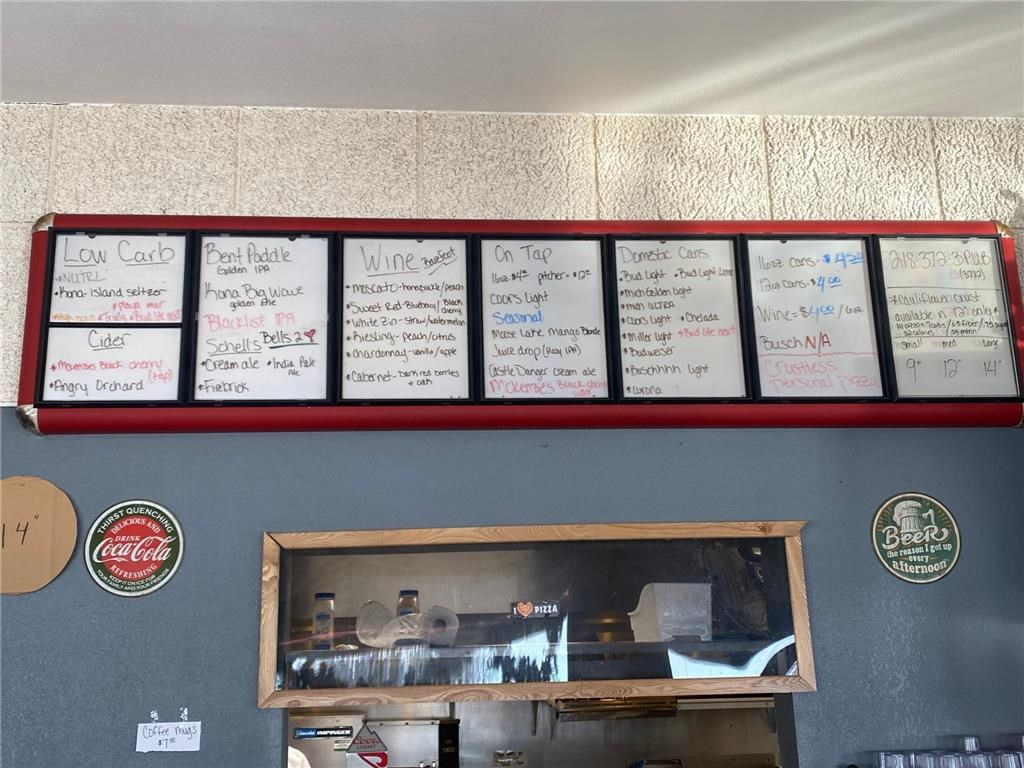 Low Carb
*NUTRL
*Kona-island seltzer
Cider
Black cherry
(tap)
*Angry Orchard
Bent Paddle
Golden IPA
Kona Big Wave
golden Ale
Blacklist IPA
Schells Bells 2
*Cream ale *India Pale
Ale
*Firebrick
Wine Barefoot
*Moscato-honeysuckle/peach
*Sweet Red-Blueberry/Black
cherry
*White Zin-straw/watermelon
*Riesling-Peach/citrus
*Chardonnay-vanilla/apple
*Cabernet-Dark red berries
+ oak
On Tap
16oz pitcher=
Coors Light
Seasonal
Moose Lake mango Blonde
Juice drop (Hazy IPA)
Castle Danger cream ale
Mckenzie's Black cherry
cider
Domestic Cans
*Bud Light *Bud Light Lime
*mich Golden Light
*mich ULTRA
*Coors Light *Chelada
*Miller Light *Bud Lite next
*Budweiser
*Buschhhhh Light
*Corona
16oz cans=
12oz cans= $4.00
Wine= $4.00/6oz
Busch N/A
Crustless
personal pizza
218-372-3PUB
(3782)
*cauliflower crust
available in 12" only*
small med Large
9" 12" 14"
14"
THIRST QUENCHING
DELICIOUS AND
DRINK
Coca-Cola
REFRESHING
KEEP IT ON ICE FOR
YOUR FAMILY AND YOUR FRIENDS
BeeR
the reason I get up
every
afternoon
I PIZZA
Coffee mugs
Lincoln IMPINGER
Coors
LIGHT